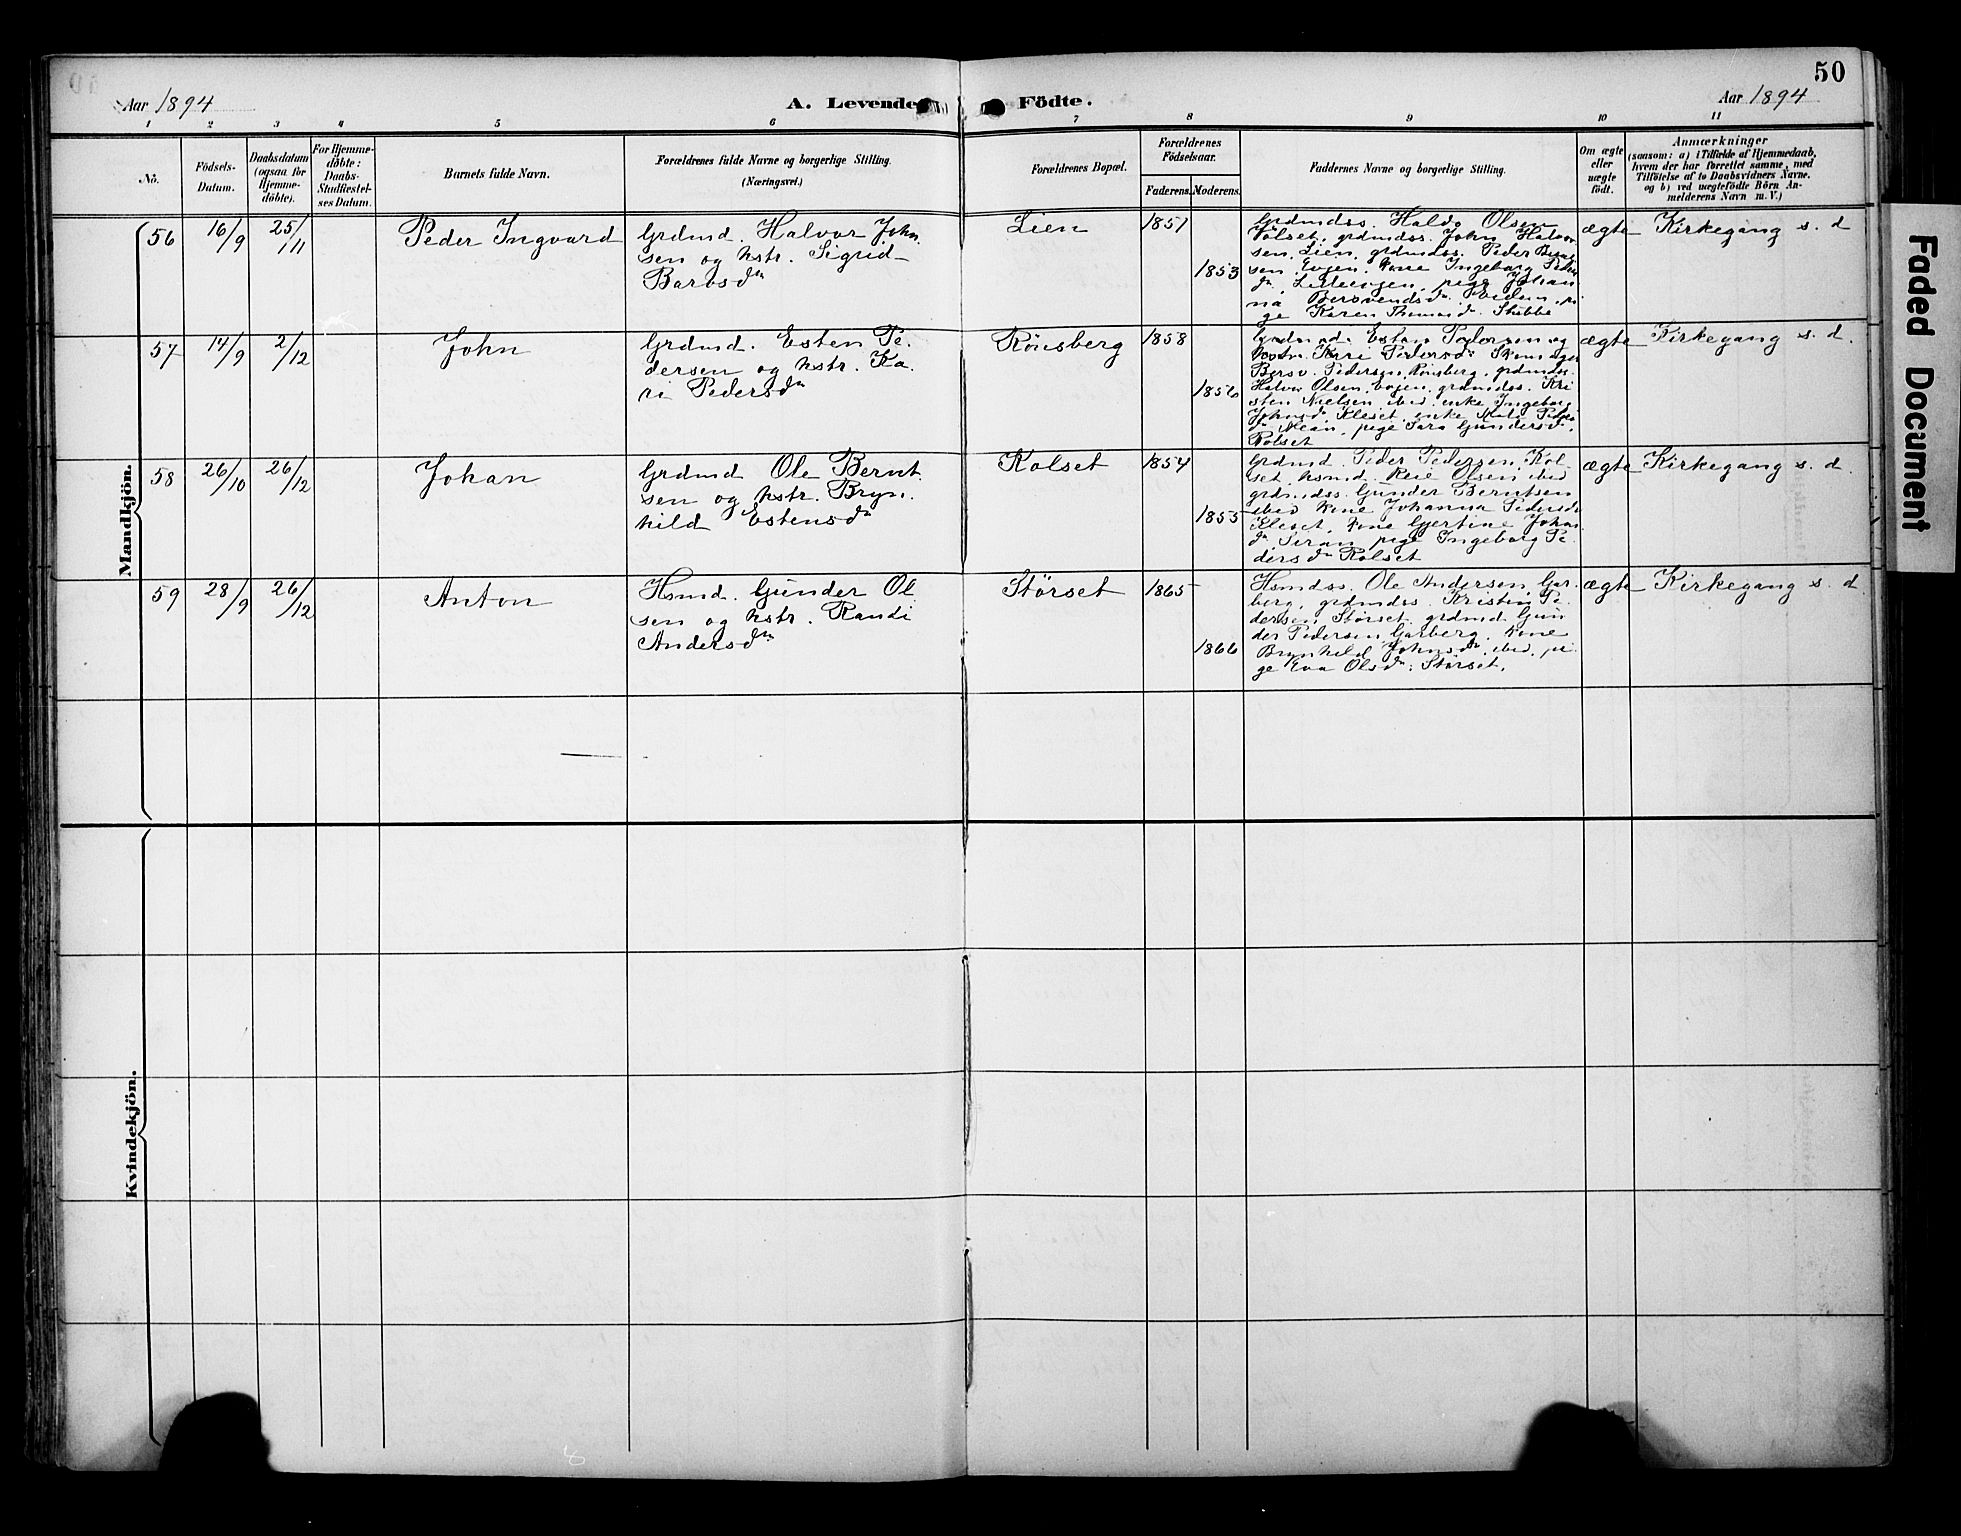 50
Aar 1894
A. Levende Födte.
Aar 1894
1 2 3 4 5 6 7 8 9 10 11
No.
Födsels-
Datum.
Daabsdatum
(ogsaa for
Hjemme-
döbte).
For Hjemme-
döbte:
Daabs-
Stadfæstel-
ses Datum.
Barnets fulde Navn.
Forældrenes fulde Navne og borgerlige Stilling.
(Næringsvei.)
Forældrenes Bopæl.
Forældrenes
Födselsaar.
Faderens. Moderens.
Faddernes Navne og borgerlige Stilling.
Om ægte
eller
uægte
födt.
Anmærkninger
(saasom: a) i Tilfælde af Hjemmedaab,
hvem der har forrettet samme, med
Tilföielse af to Daabsvidners Navne.
og b) ved uægtefödte Börn An-
melderens Navn m. V.)
Mandkjön.
56
16/9
25/11
Peder Ingvard
Grdmd. Halvor John
sen og hstr. Sigrid
Barosdn
Lien
1851
1853
Grdmdss. Haldo Olsen
grdmdss. John Halvor
sen Lien, grdmdss. Peder
sen Evjen, kone Ingeborg Peders
dn Litleevjen, pige Johan
na Bersvendsdn pi
ge Karen Thomasdn Stubbe
ægte
Kirkegang s. d
57
14/9
2/12
John
Grdmd. Esten Pe
dersen og hstr. Ka
ri Pedersdn
Rönsberg
1858
1856
Grdmd. Esten Pedersen og
hstr. Kari Pedersdn
Bersv. Pedersen Rönsberg, grdmdss.
Halvor Olsen Evjen, grdmdss. Kri
sten Nielsen ibid. enke Ingeborg
Johnsdn Kleset, enke Peders
dn pige Sara Gundersdn
Rolset
ægte
Kirkegang s. d.
58
26/10
26/12
Johan
Grdmd Ole Bernt
sen og hstr. Bryn
hild Estensdn
Rolset
1854
1855
Grdmd. Peder Pedersen Rol
set, hsmd. Olsen ibid
grdmdss. Gunder Berntsen
ibid kone Johanna Pedersdn
Kleset, kone Gjertine Johns
dn pige Ingeborg Pe
dersdn Rolset
ægte
Kirkegang s. d.
59
28/9
26/12
Anton
Hsmd. Gunder Ol
sen og hstr. Randi
Andersdn
Störset
1865
1866
Hsmdss. Ole Andersen Gar
berg, grdmdss. Kristen Pe
dersen Störset, grdmd. Gun
der Pedersen Garberg, kone
Brynhild Johnsdn ibid, pi
ge Eva Olsdn Störset.
ægte
Kirkegang s. d.
Kvindekjön.
Faded Document